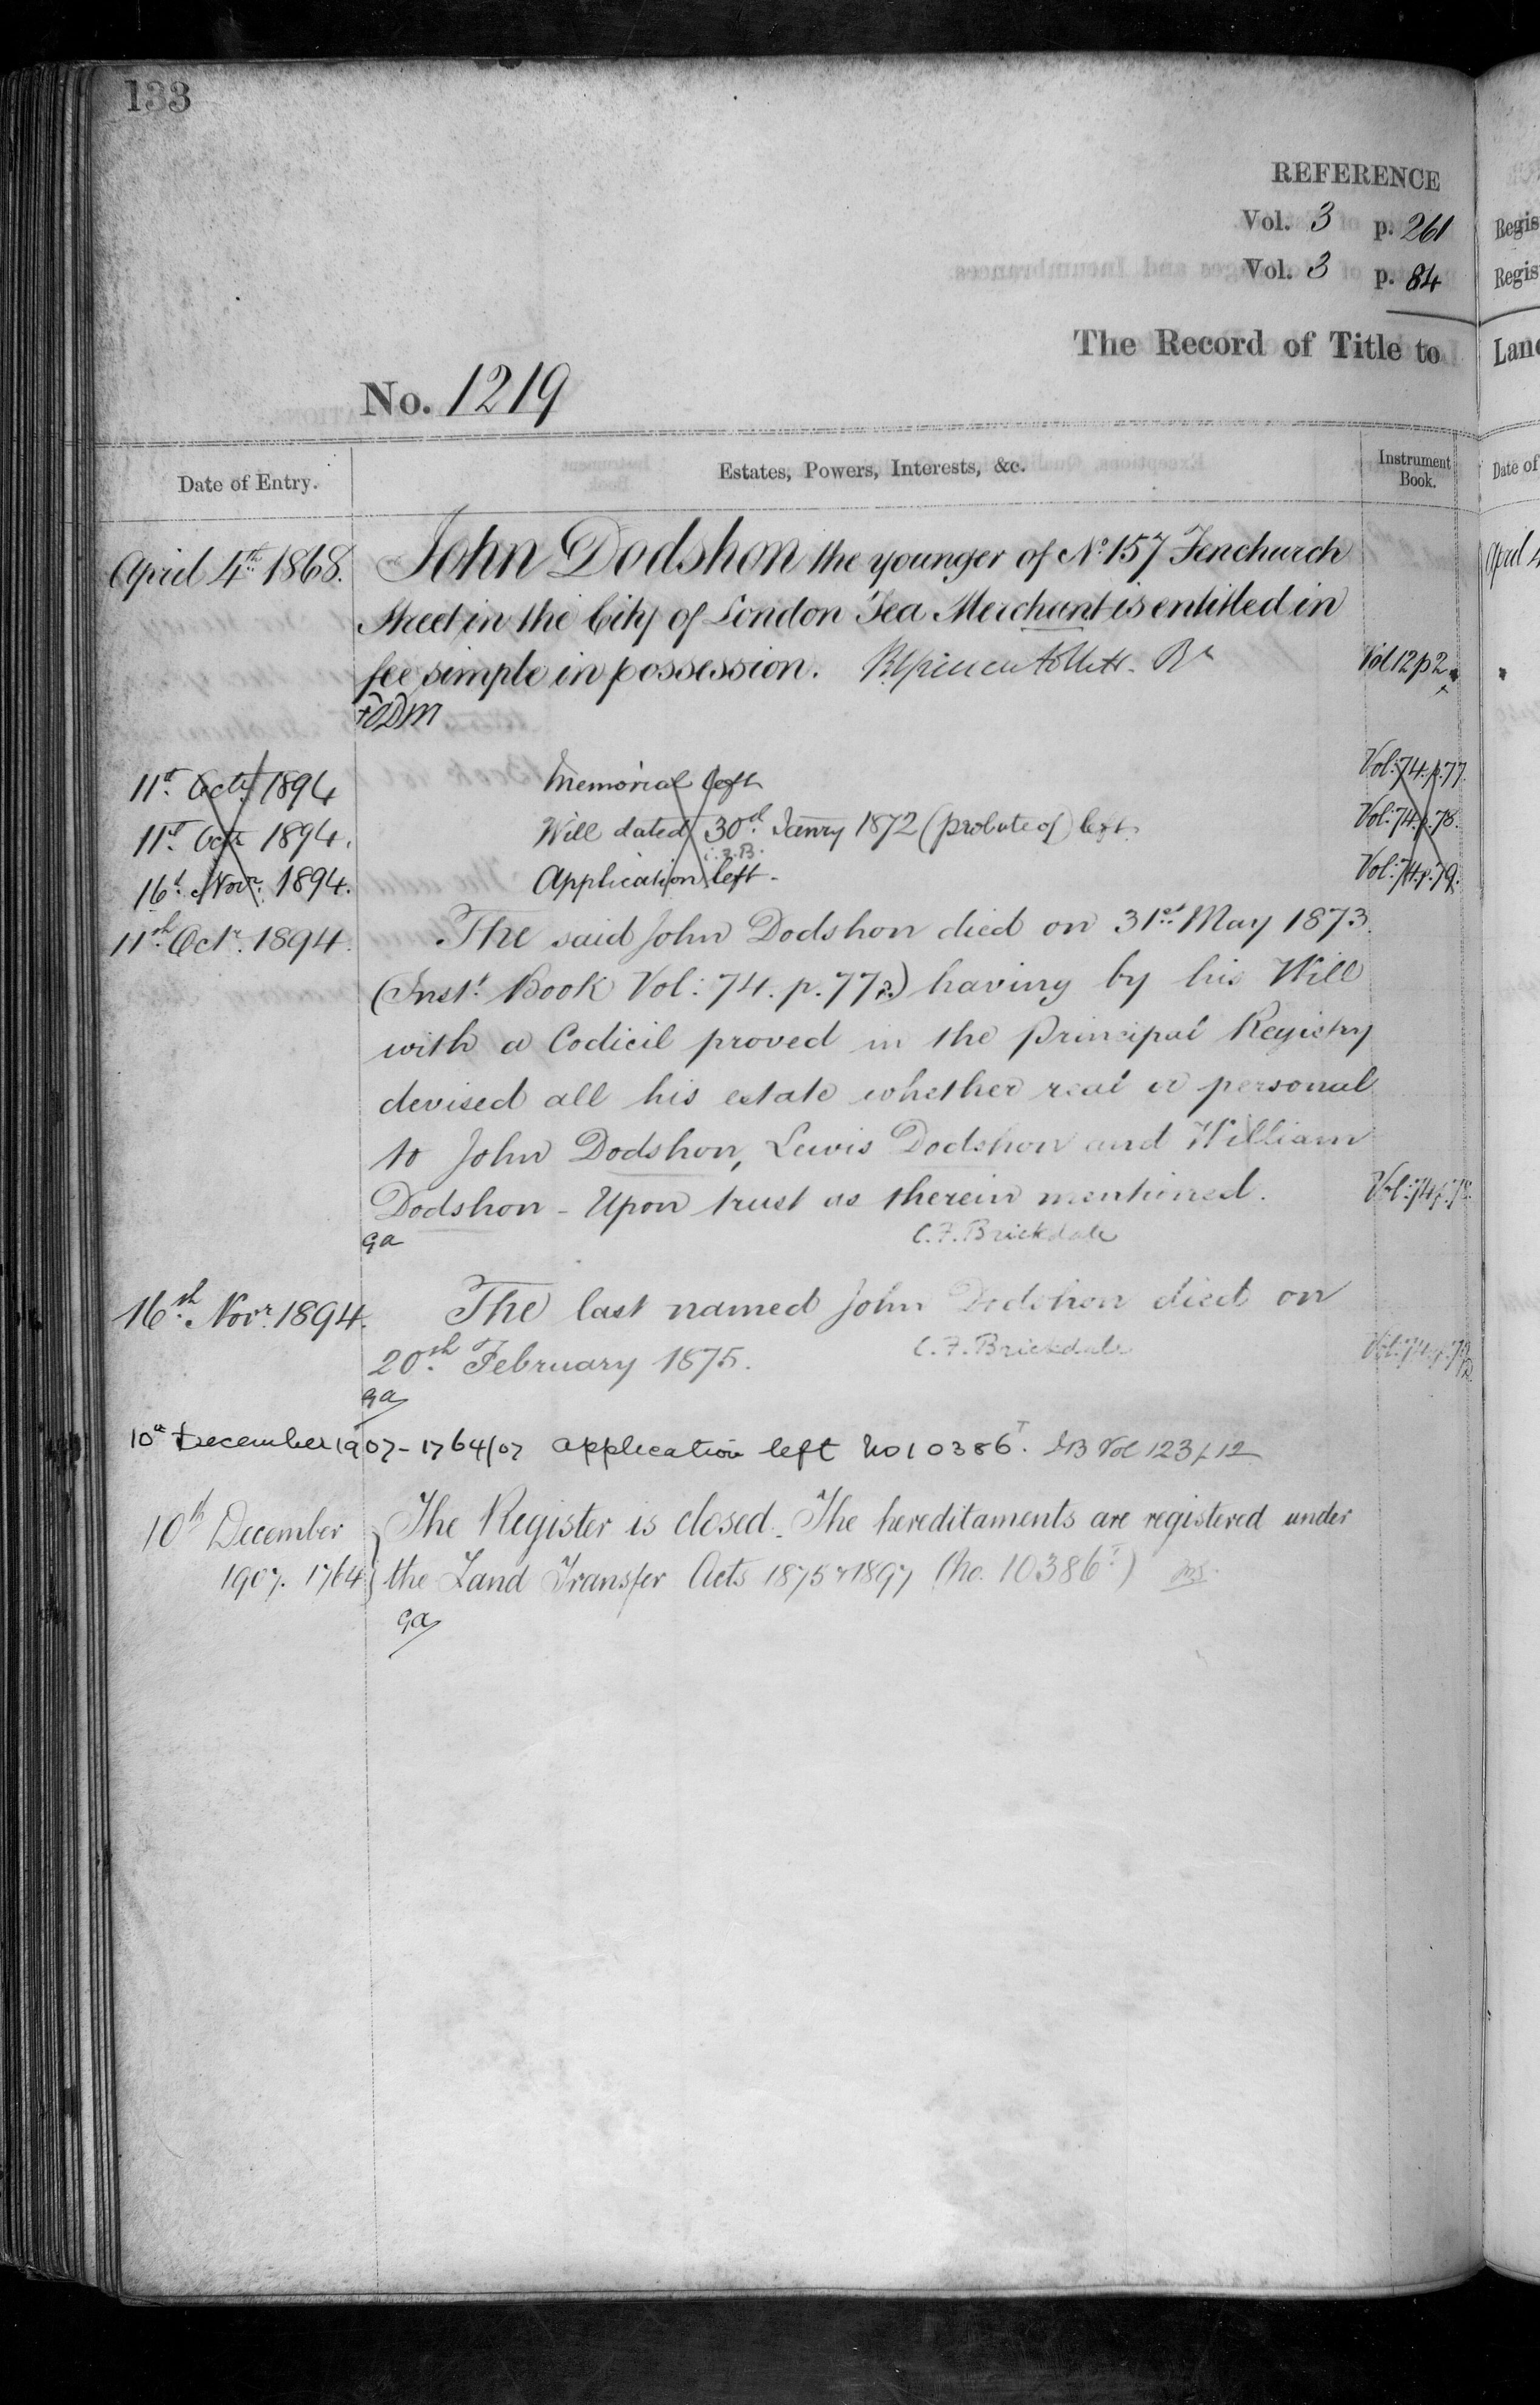 133
REFERENCE
Vol. 3 p. 261
Vol. 3 p. 84
The Record of Title to
No. 1219
Date of Entry. Estates, Powers, Interests, &c. Instrument Book.
April 4th 1868. John Dodshon the younger of No 157 Fenchurch
Street in the City of London Tea Merchant is entitled in
fee simple in possession. Vol 12 p 2
11th Octr 1894 Memorial left Vol: 74. p. 77.
11th Octr 1894. Will dated 30th Janry 1872 (probate of) left. Vol: 74. p. 78.
C.F.B.
16th Novr 1894. Application left. Vol: 74. p. 79.
11th Octr. 1894. The said John Dodshon died on 31st May 1873.
(Inst. Book Vol: 74. p. 77.) having by his Will
with a Codicil proved in the Principal Registry
devised all his estate whether real or personal
to John Dodshon, Lewis Dodshon and William
Dodshon - Upon trust as therein mentioned. Vol: 74 p. 78.
ga C.F. Brickdale
16th Novr. 1894. The last named John Dodshon died on
20th February 1875. C.F. Brickdale Vol: 74. p. 79
ga
10th December 1907 - 1764/07 application left No 10386T. IB Vol 123 p 12
10th December The Register is closed. The hereditaments are registered under
1907. 1764 the Land Transfer Acts 1875 & 1897 (No. 10386T)
ga
Regis
Regis
Land
Date of
April 4